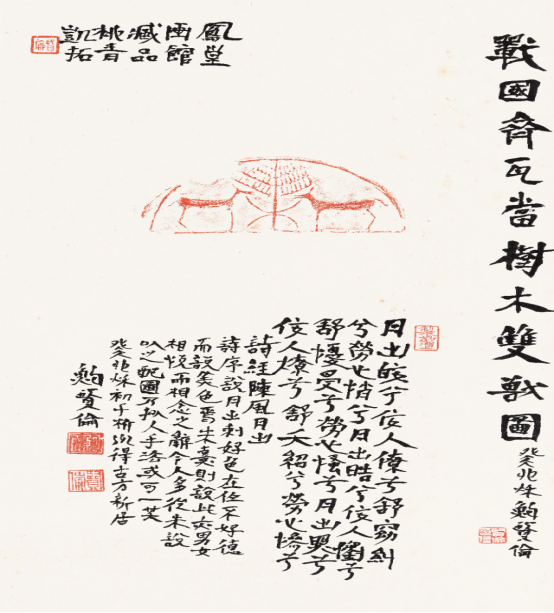 戰國齊瓦當樹木雙獸圖
癸卯秌鮑賢倫
鳳堂
館
臧品
桃青
凱拓
月出皎兮佼人僚兮舒窈糾
兮勞心悄兮月出皓兮佼人懰兮
舒懮受兮勞心慅兮月出照兮
佼人燎兮舒夭紹兮勞心慘兮
詩經陳風月出
詩序說月出刺好色在位不好德
而說美色焉朱熹則說此亦男女
相悅而相念之辭今人多從朱說
以之配圖乃拟人手法或可一笑
癸卯秌初于杭州得古方新居
鮑賢倫